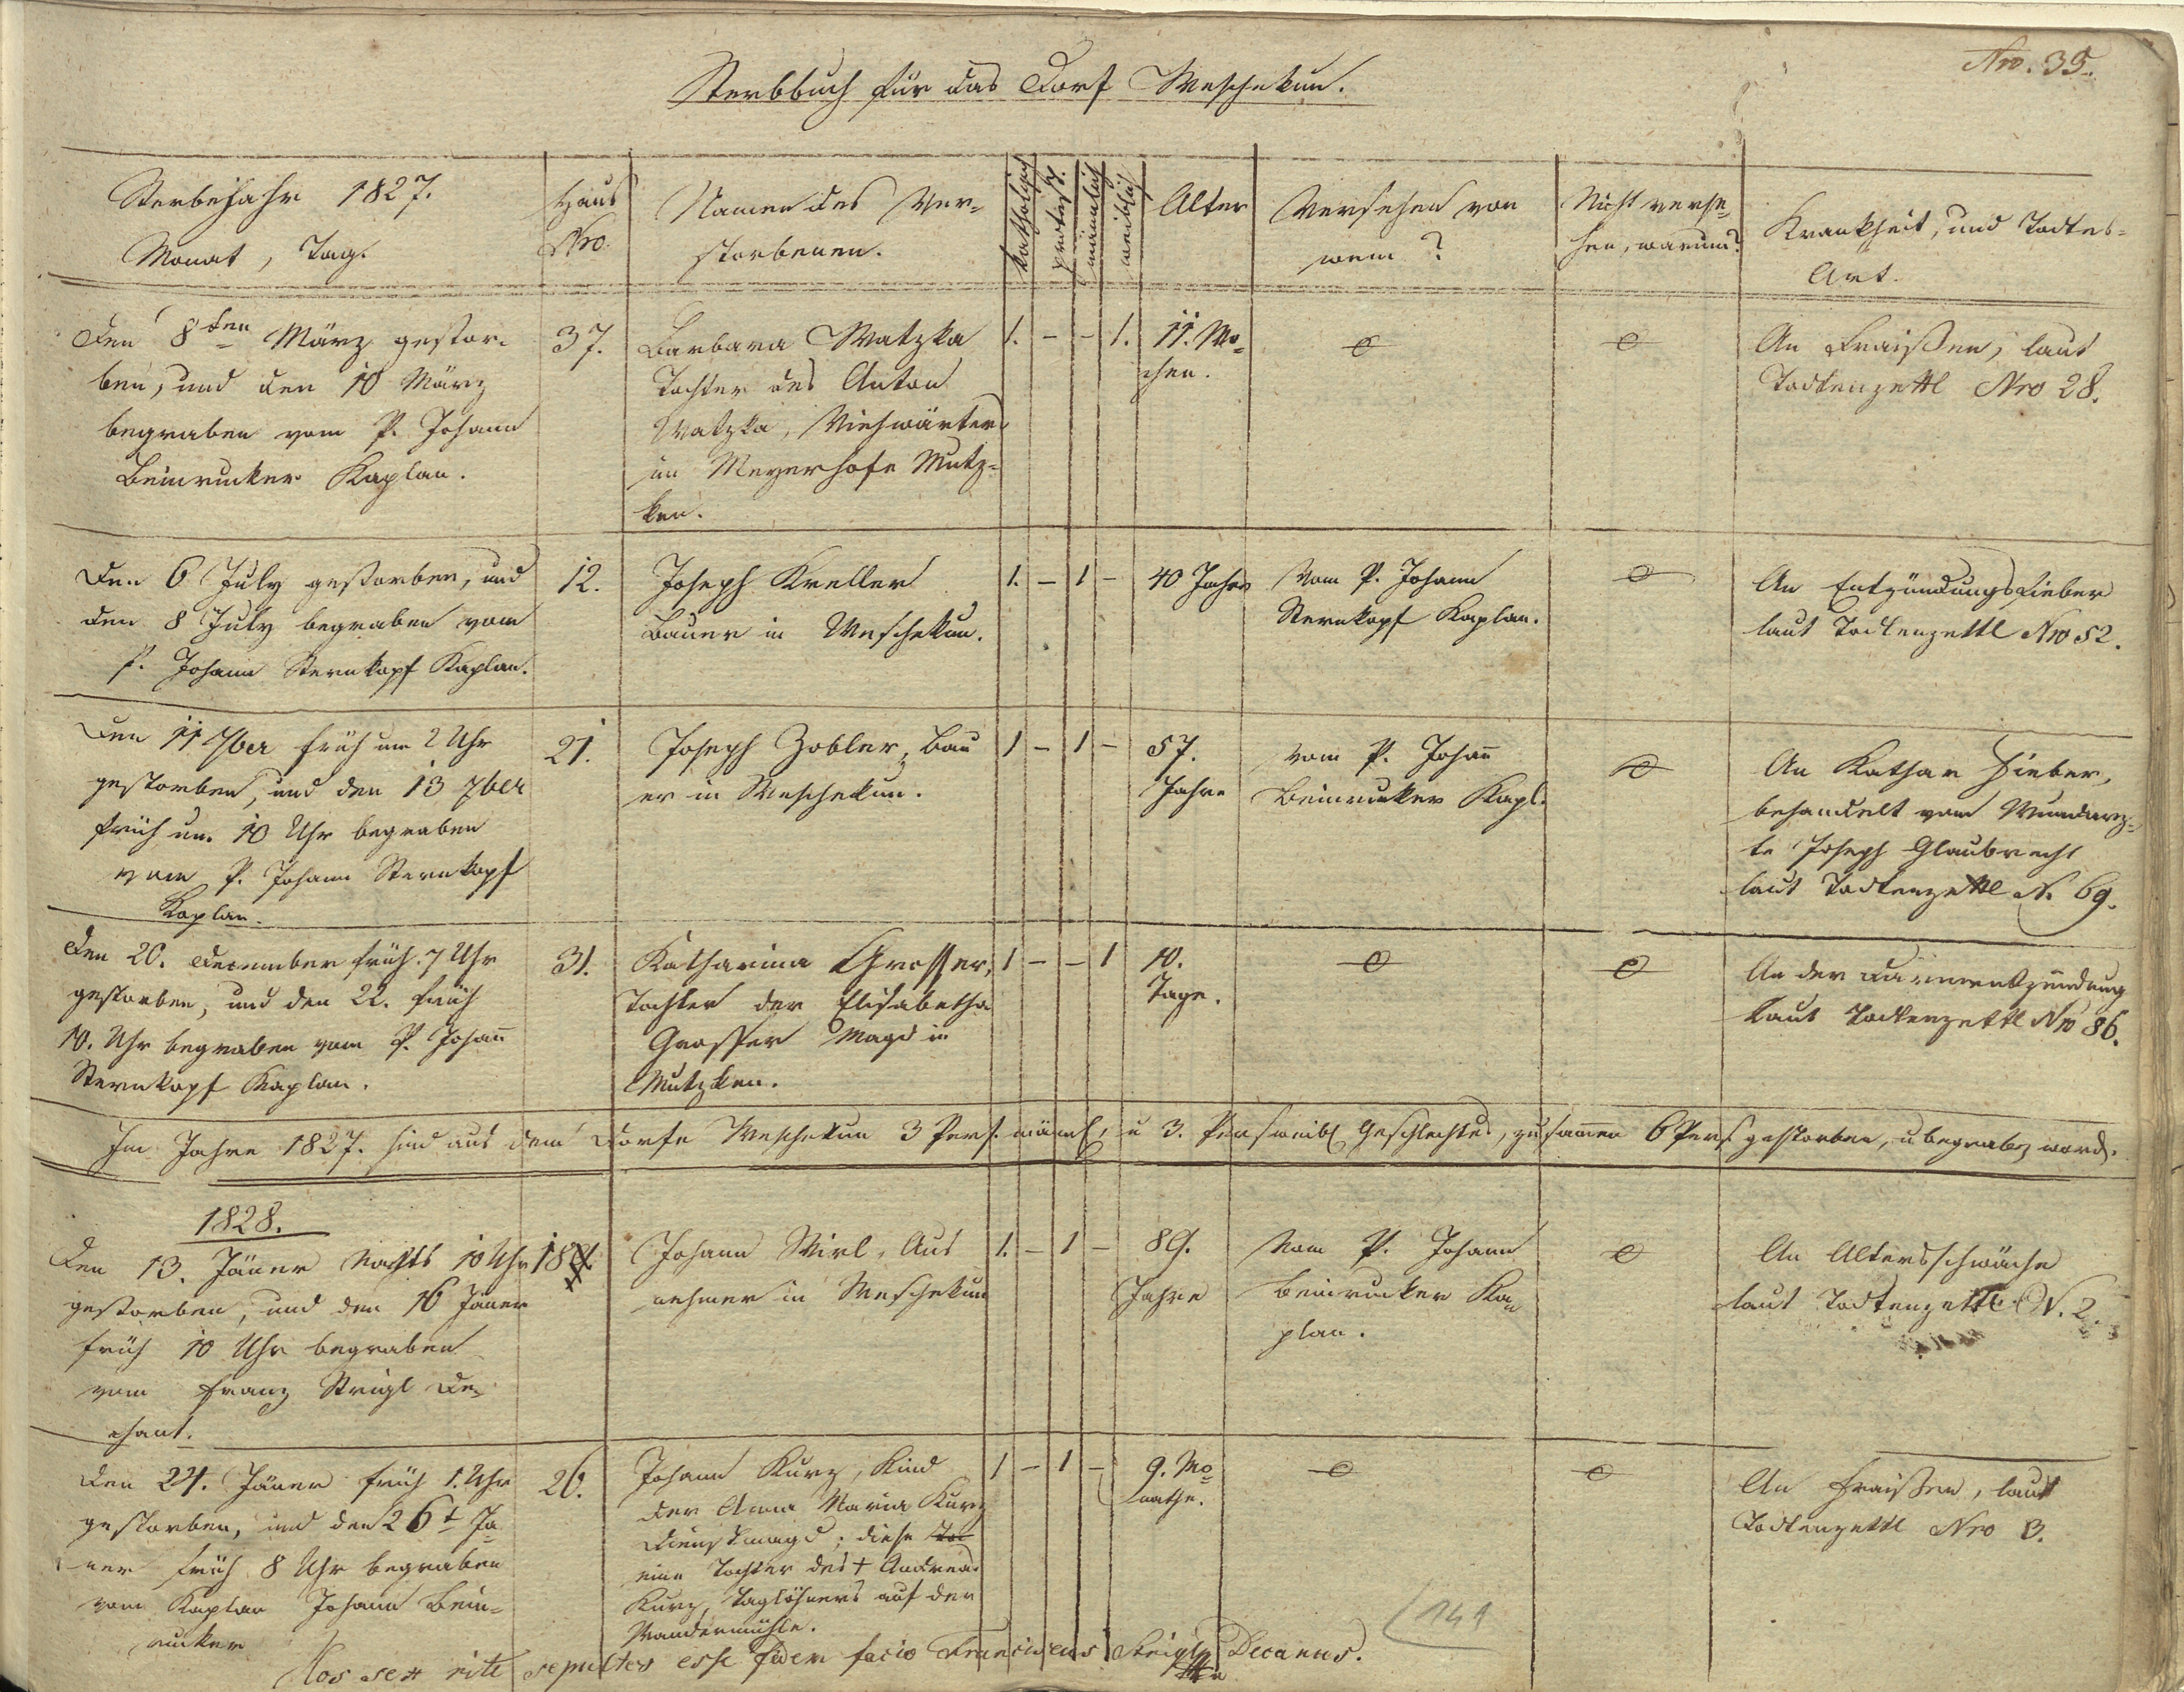 Nro. 35.
Sterbbuch für das Dorf Meschekun.
Sterbejahr 1827.
Monat, Tag.
Haus
Nro.
Namen des Ver-
storbenen.
katholisch
protest.
männlich
weiblich
Alter
Versehen von
wem?
Nicht verse-
hen, warum?
Krankheit, und Todtes-
Art.
Den 8ten März gestor-
ben, und den 10 März
begraben vom P. Johann
Beinrucker Kaplan.
37.
Barbara Watzka
Tochter des Anton
Watzka, Viehwärter
im Meyerhofe Mutz-
ken.
1. - - 1.
11. Wo-
chen.
An Fraißen, laut
Todtenzettl Nro 28.
Den 6 July gestorben, und
den 8 July begraben vom
P. Johann Sternkopf Kaplan.
12.
Joseph Kreller
Bauer in Meschekun.
1. - 1 -
40 Jahre
Vom P. Johann
Sternkopf Kaplan.
An Entzündungsfieber
laut Todtenzettl Nro 52.
Den 11 7ber früh um 2 Uhr
gestorben, und den 13 7ber
früh um 10 Uhr begraben
vom P. Johann Sternkopf
Kaplan.
21.
Joseph Zobler, Bau
er in Meschekun.
1 - 1 -
57.
Jahre
vom P. Johann
Beinrucker Kapl.
An Kathar Fieber,
behandelt vom Wundarz-
te Joseph Glaubrecht
laut Todtenzettl N. 69.
Den 20. December früh 7 Uhr
gestorben, und den 22. früh
10. Uhr begraben vom P. Johann
Sternkopf Kaplan.
31.
Katharina Grosser,
Tochter der Elisabetha
Grosser Magd in
Mutzken.
1 - - 1
10.
Tage.
An der Darmentzündung
laut Todtenzettl Nro 86.
Im Jahre 1827. sind aus dem Dorfe Meschekun 3 Pers. männl, u 3. Pers weibl Geschlechts, zusammen 6 Pers gestorben, u begraben word.
1828.
Den 13. Jäner Nachts 10 Uhr
gestorben, und den 16 Jäner
früh 10 Uhr begraben
vom Franz Strigl De-
chant.
18
Johann Wirl, Aus
nehmer in Meschekun
1. - 1 -
89.
Jahre
Vom P. Johann
Beinrucker Ka-
plan.
An Altersschwäche
laut Todtenzettl N. 2.
Den 24. Jäner früh 1. Uhr
gestorben, und den 26t Jä
ner früh 8 Uhr begraben
vom Kaplan Johann Bein-
rucker
26.
Johann Kurz, Kind
der Anna Maria Kurz
Dienstmagd; diese
eine Tochter des † Andreas
Kurz, Taglöhners auf der
Wandermühle.
1 - 1 -
9. Mo-
nathe.
An Fraißen, laut
Todtenzettl Nro 3.
Hos sex rite sepultos esse fidem facio Franciscus Strigl Decanus.
141